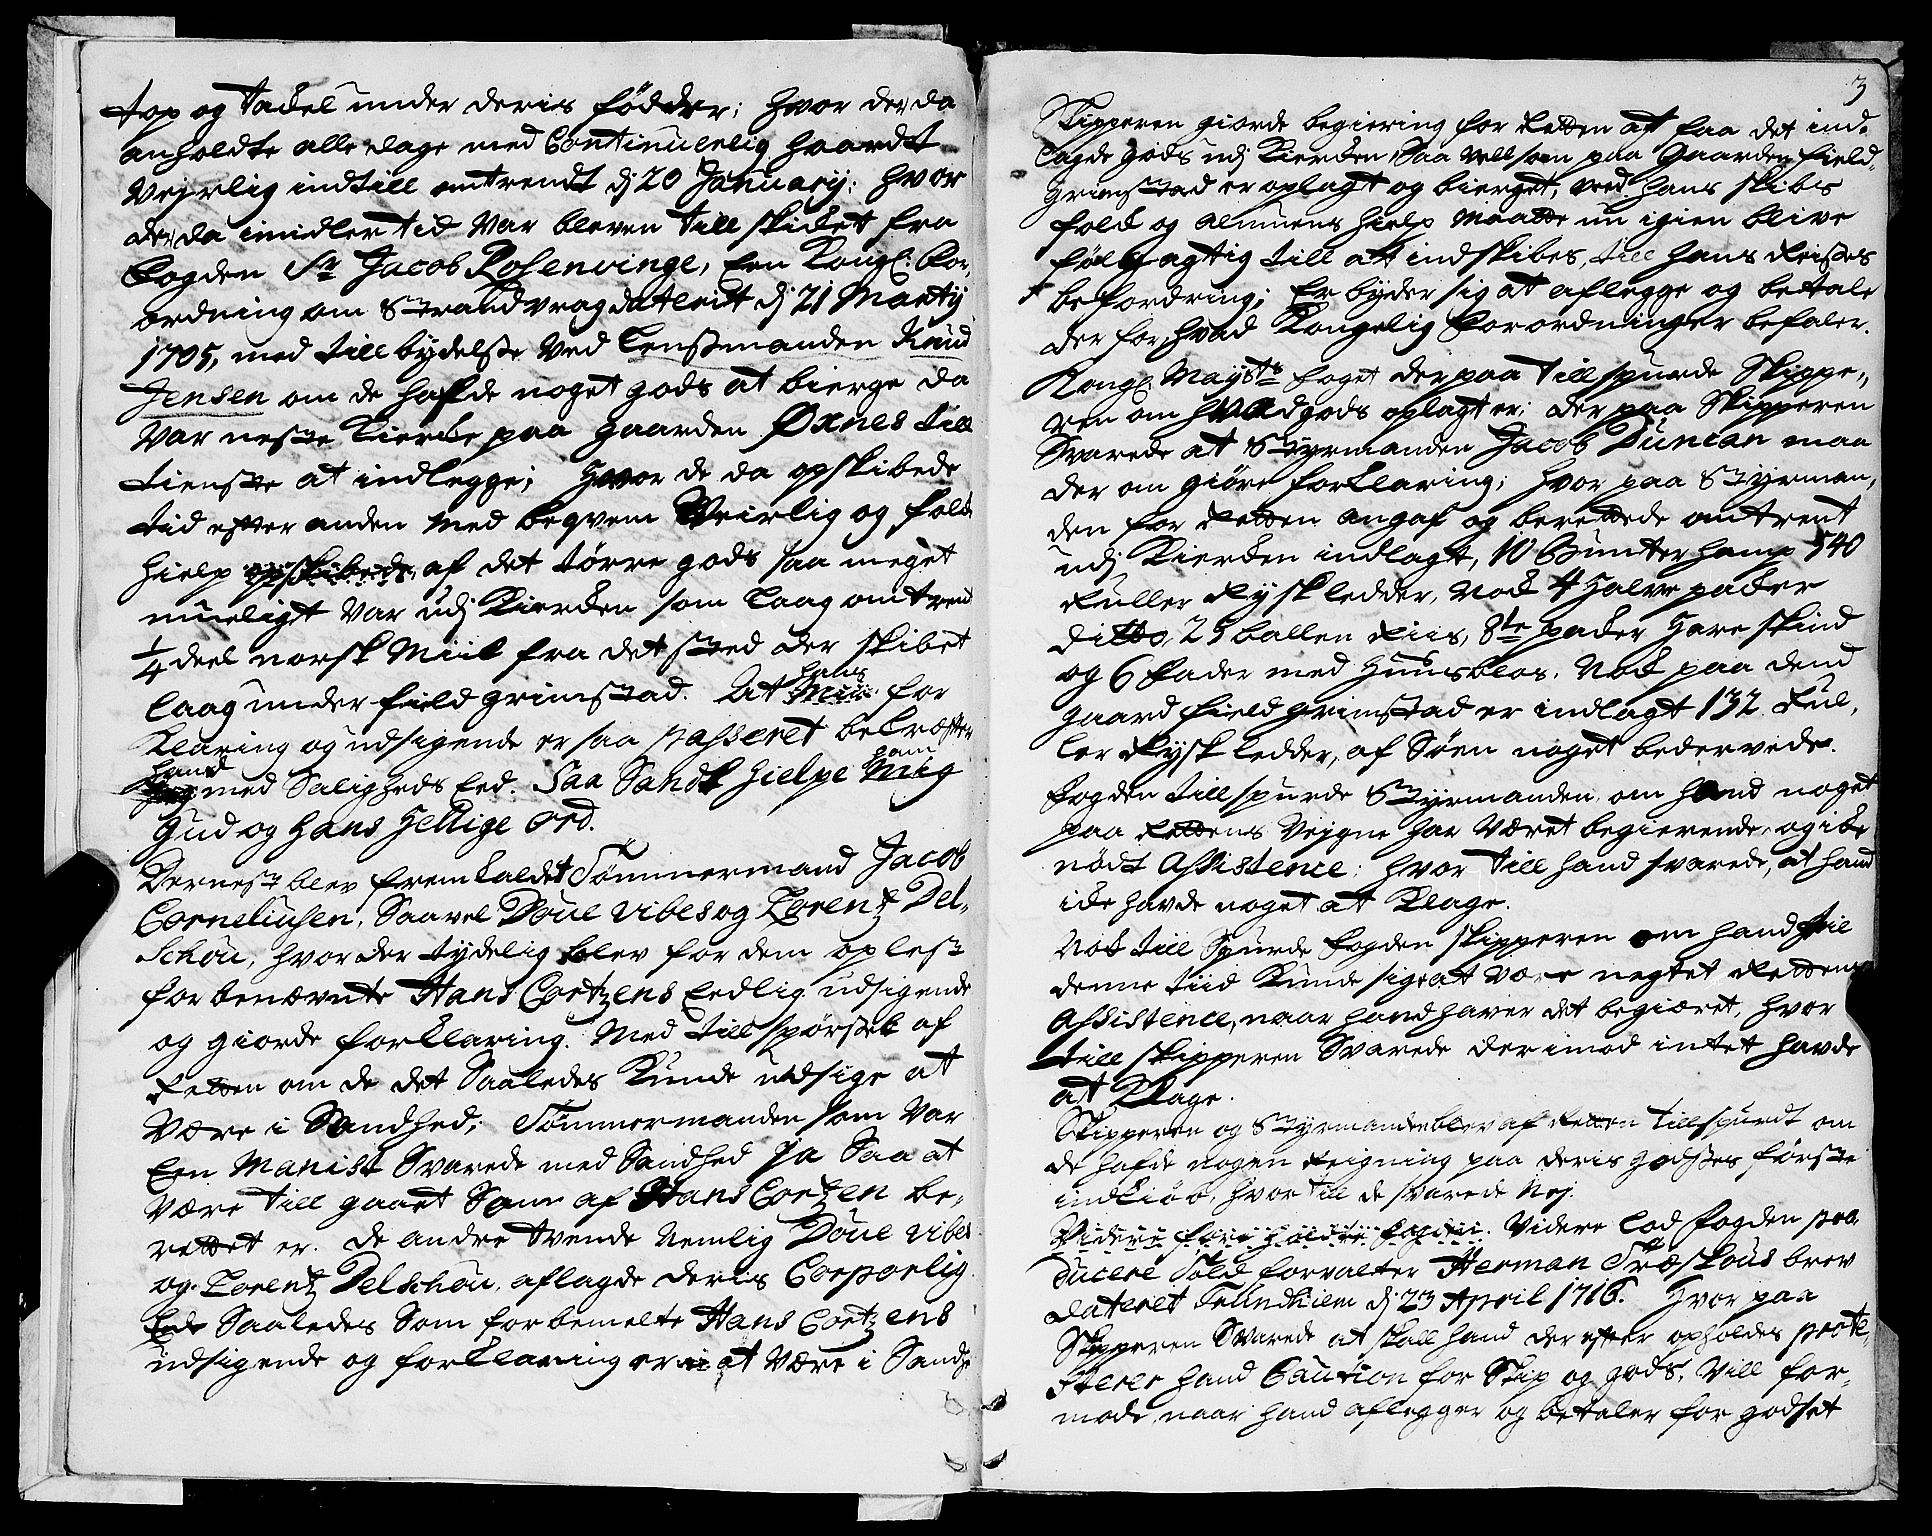 top og tackel under deris födder; hvor der da
anholdte alle dage med Continuerlig haardt
Vejrlig indtill omtrendt dj 20 January; hvor
der da imidlertid var bleven till skicket fra
Fogden Sr Jacob Rosenvinge, Een Kongl: For,
ordning om Strandvrag daterit dj 21 Marty
1705, med tillbydelse ved Lensmanden Knud
Jensen om de hafde noget gods at bierge da
var neste Kiercke paa gaarden Øxnes till
tieneste at indlegge; hvor de da opskibede
tid efter anden med beqvem Veirlig og folck
hielp opskibede, af det törre gods saa meget
mueligt var udj Kiercken som laag omtrent
1/4 deel norsk Miil fra det sted der skibet
laag under field grimstad. At hans Min for
Klaring og udsigende er saa passeret becræfter
hand jeg med Saligheds Eed. Saa Sandt hielpe ham Mig
Gud og hans Hellige ord.
Dernest blev fremkaldet Tömmermand Jacob
Corneliusen, Saavel Doue vibes og Lorentz Del,
Schou, hvor der tydelig blev for dem oplest
forbenævnte Hans Coetzens Eedlig udsigende
og giorde forklaring. Med till spörsel af
Retten om de det Saaledes Kunde udsige at
Være i Sandhed; Tömmermanden som var
Een Manist Svarede med Sandhed Ja Saa at
være till gaaet Som af Hans Coetzen be,
rettet er. de andre tvende Nemlig Doue vibes
og Lorentz Delschou, aflagde deris Corporlig
Eede Saaledes Som forbemelte Hans Coetzens
udsigende og forklaring er at være i Sandh
3
Skipperen giorde begiering for Retten at faa det ind,
lagde gods udj Kiercken, Saa vell som paa Gaarden Field,
grimstad er oplagt og bierget, med hans skibs
folck og almuens hielp maatte nu igien blive
fölgagtig till at indskibes, till hans Reises
befordring; Erbyder sig at aflegge og betale
der for, hvad Kongelig Forordninger befaler.
Kongl: Maysts foget derpaa tillspurde Skippe,
ren om hvad gods oplagt er; der paa Skipperen
Svarede at Styrmanden Jacob Duncan maa
der om giöre forklaring; hvor paa Styrman,
den for Retten angaf og berettede omtrent
udj Kiercken indlagt, 10 Bunter hamp 540
Ruller Rysk ledder, nock 4 Halve packer
ditto, 25 ballen Riis, 8te packer Hare skind
og 6 Fader med Huusblos. Nock paa dend
gaard field grimstad er indlagt 132 Rul,
ler Rysk ledder, af Söen noget bedervede.
Fogden tillspurde Styrmanden, om hand noget
paa Rettens Vejgne har været begierende, og icke
nödt Assistence; hvor till hand svarede, at hand
icke havde noget at Klage.
Nock till Spurde Fogden skipperen om hand til
denne tiid Kunde sige at være negtet Rettens
Assistence, naar hand haver det begiæret, hvor
till skipperen Svarede derimod intet havde
at Klage.
Skipperen og Styrmanden blev af Retten tillspurdt om
de hafde nogen Reigning paa deris godses förste
indkiöb, hvor till de svarede Nej.
Videre fore holdte fogden. Videre lod Fogden pro,
ducere Told forvalter Herman Træskous brev
dateret Trundhiem dj 23 April 1716. Hvor paa
Skipperen Svarede at skall hand der efter opholdes prote,
sterer hand Caution for Skip og gods, Vill for,
mode, naar hand aflegger og betaler for godset